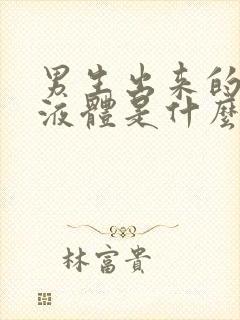 男生出來的
液體是什麼
林富貴